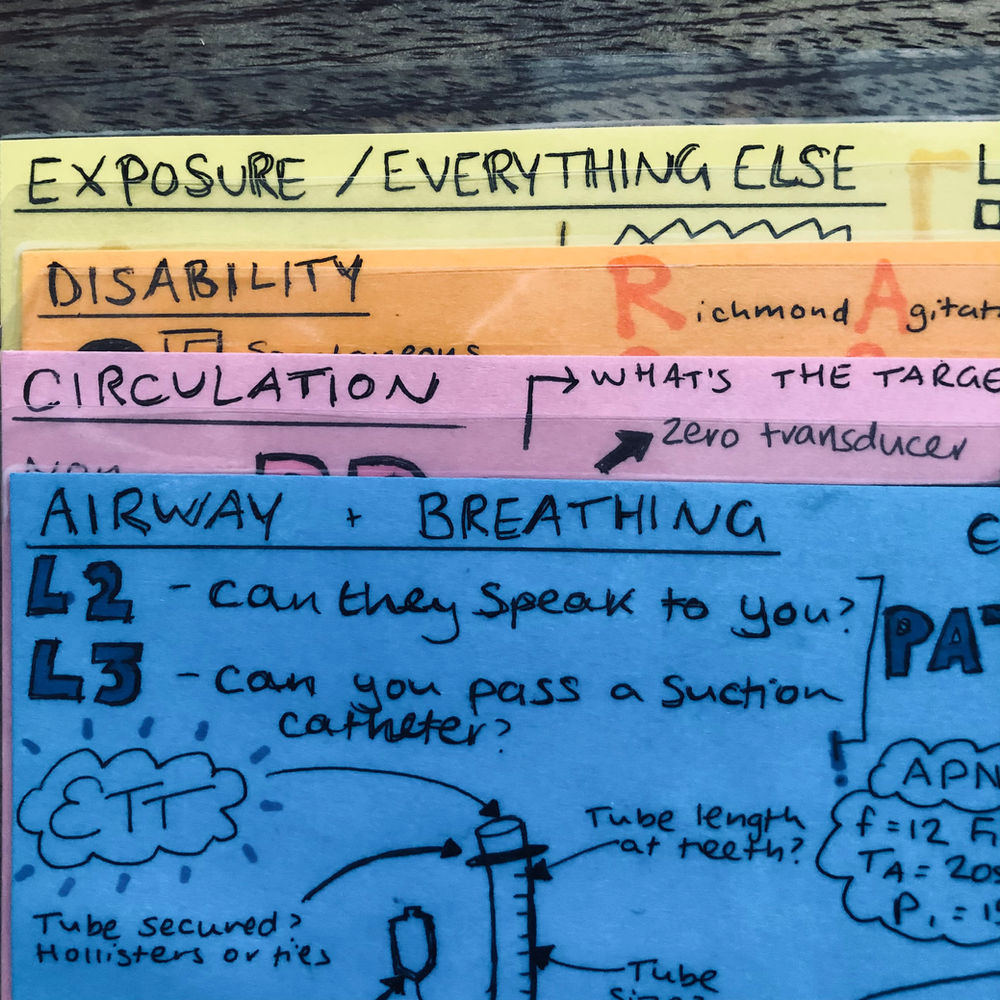 EXPOSURE / EVERYTHING ELSE
DISABILITY
Richmond Agitat
CIRCULATION
WHAT'S THE TARGE
Zero transducer
Non
AIRWAY + BREATHING
L2 - can they speak to you?
L3 - can you pass a suction
catheter?
PAT
ETT
Tube length
at teeth?
APN
f = 12
TA = 20s
P1 = 15
Tube secured?
Hollisters or ties
Tube